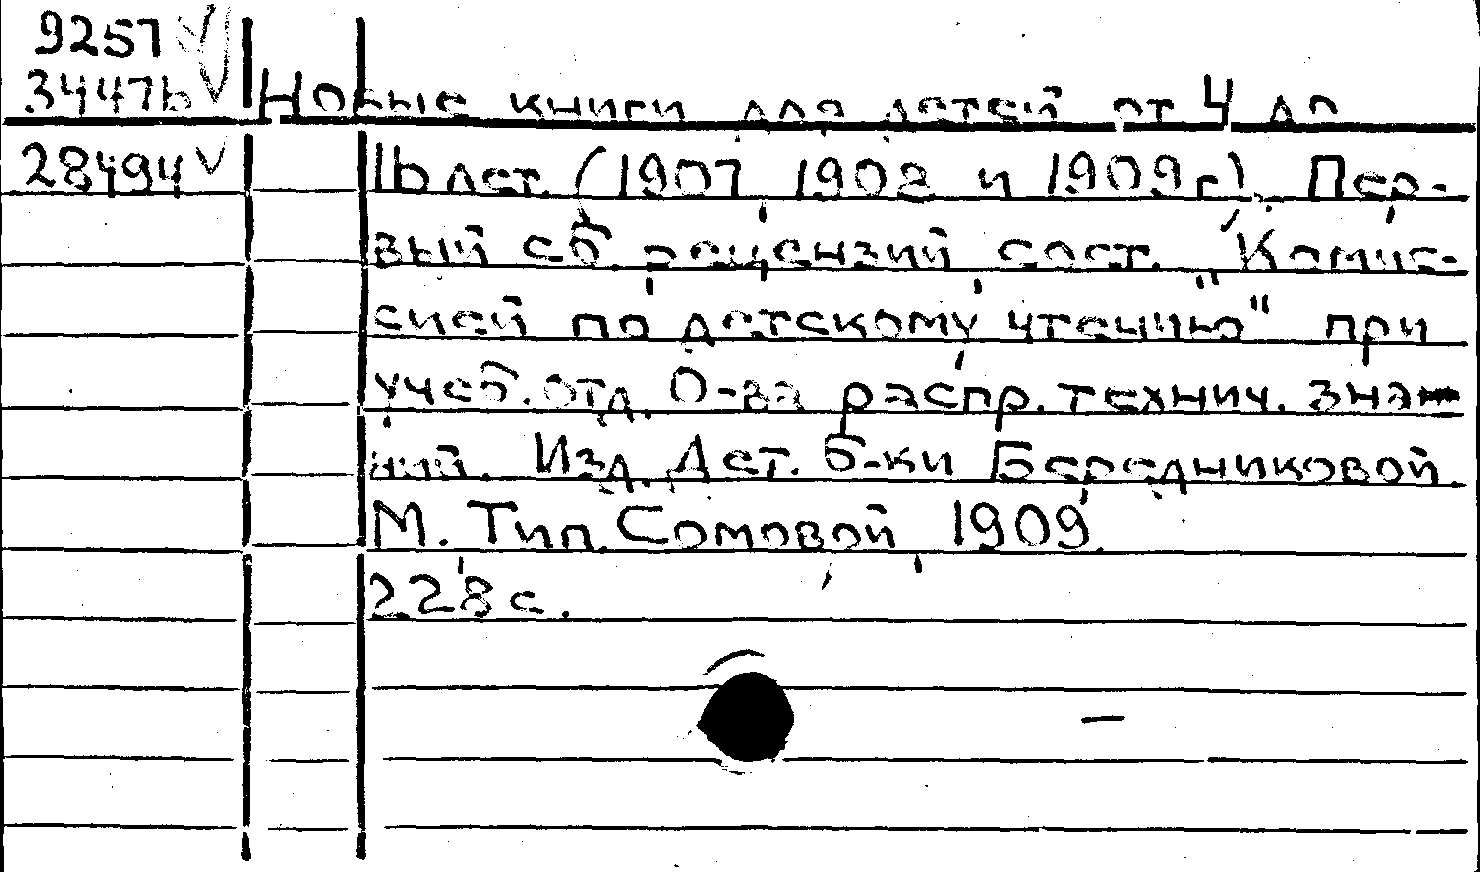 9257
34476
28494
Новые книги для детей от 4 до
16 лет. (1907, 1908 и 1909 г.). Пер-
вый сб. рецензий, сост. "Комис-
сией по детскому чтению" при
учеб. отд. О-ва распр. технич. зна-
ний. Изд. Дет. б-ки Бередниковой.
М. Тип. Сомовой, 1909.
228 с.